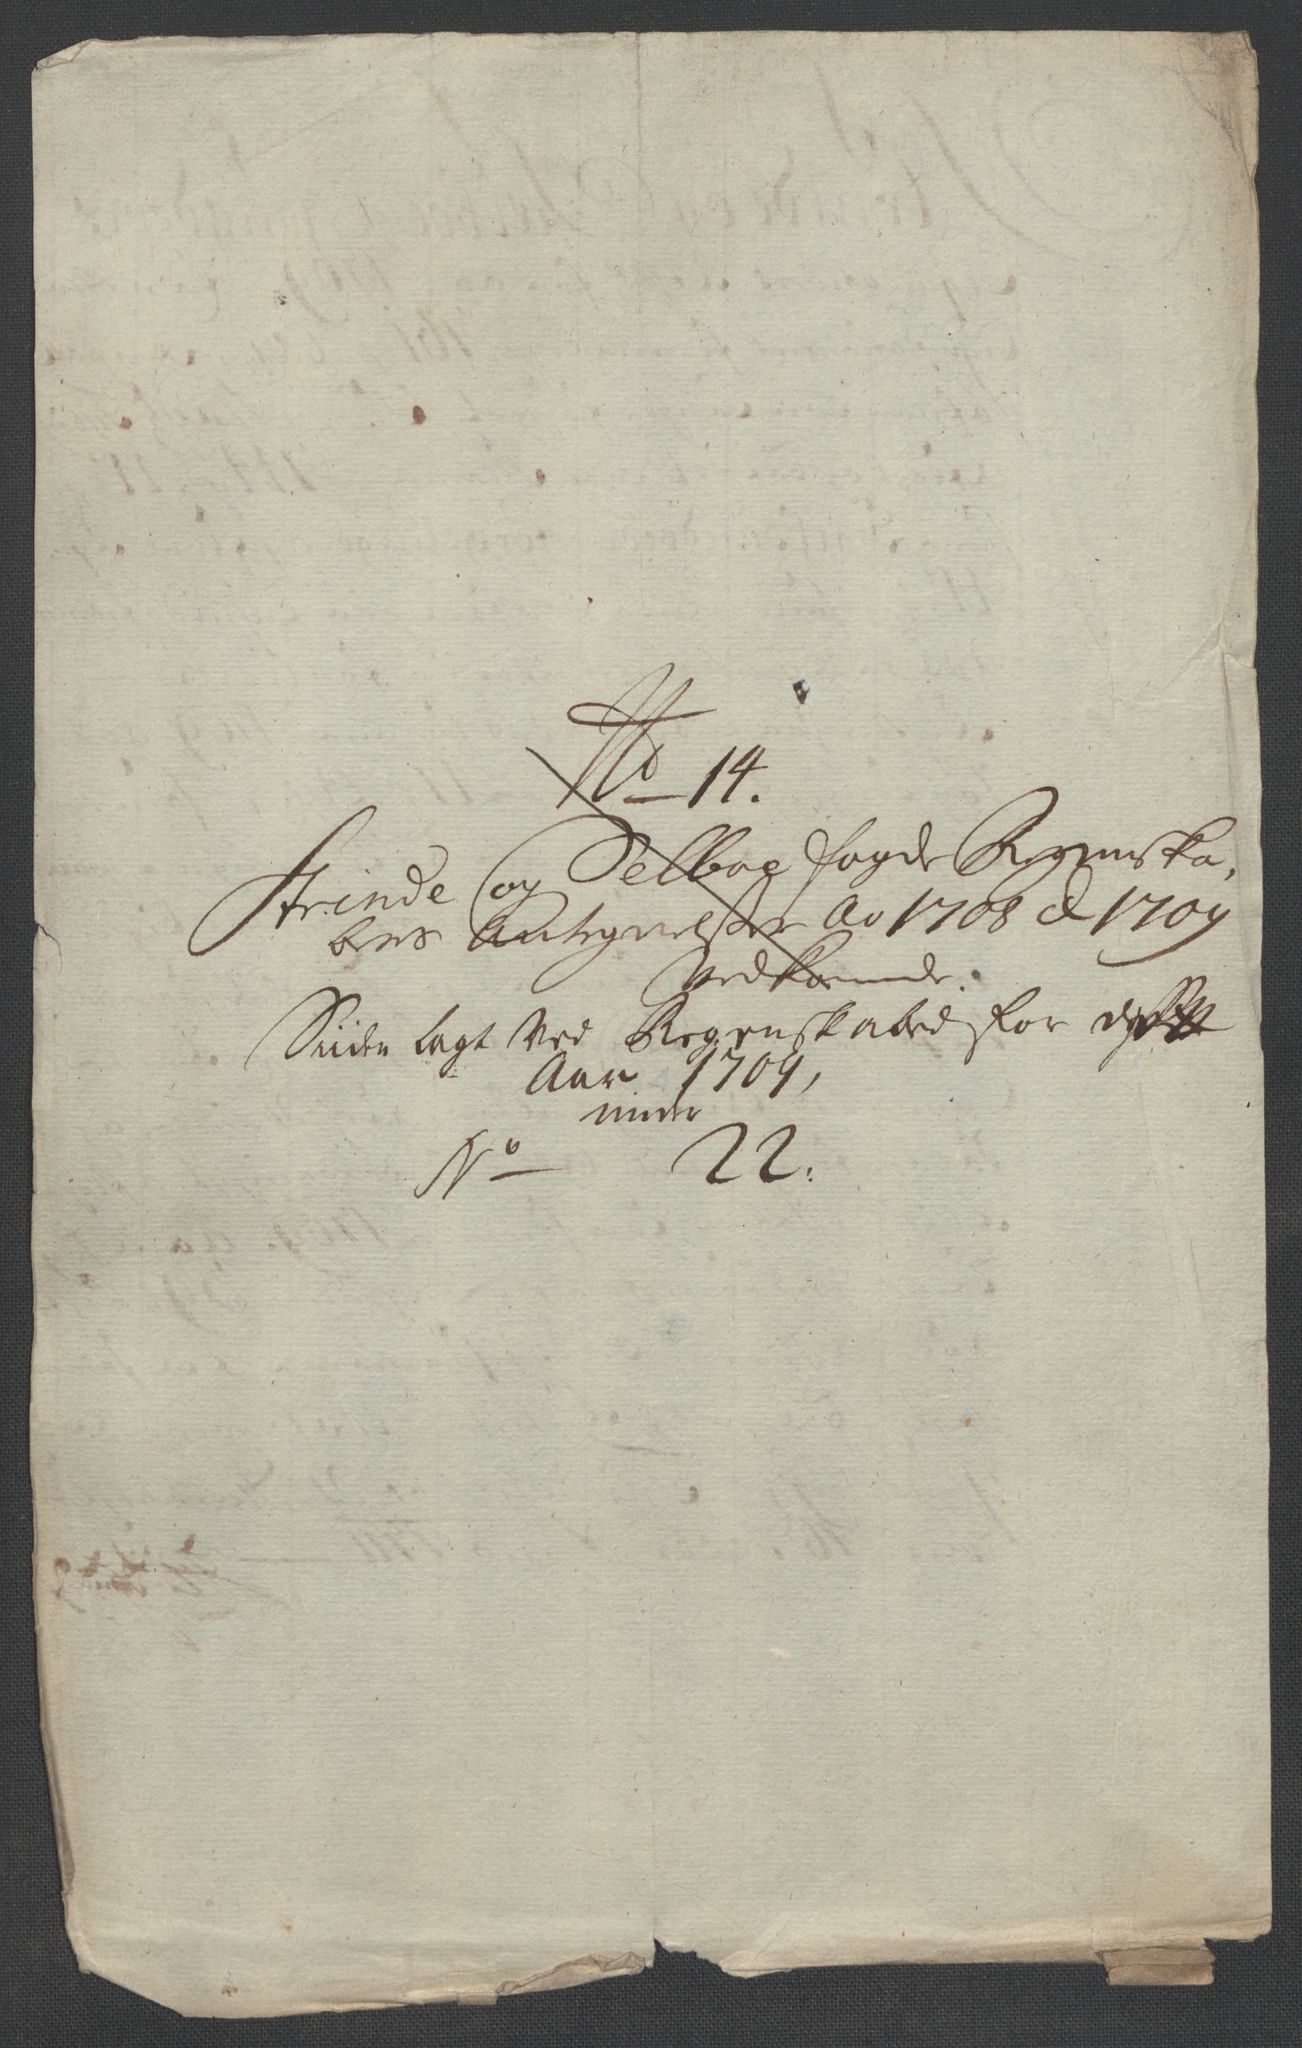 No 14.
Strinde og Selboe fogd: Regenska,
bers Antegnelser Ao 1708 & 1709
Vedkommende.
Siiden lagt Ved Regenskabed for
Aar 1709,
under
No 22.